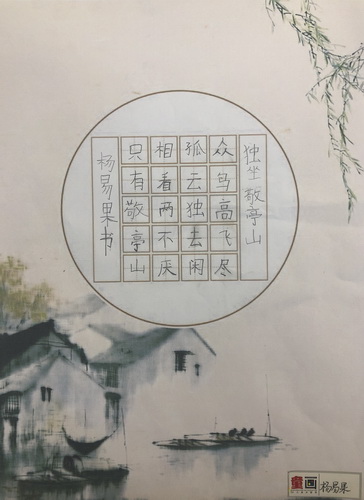 独坐敬亭山
众鸟高飞尽
孤云独去闲
相看两不厌
只有敬亭山
杨易果书
童画
杨易果